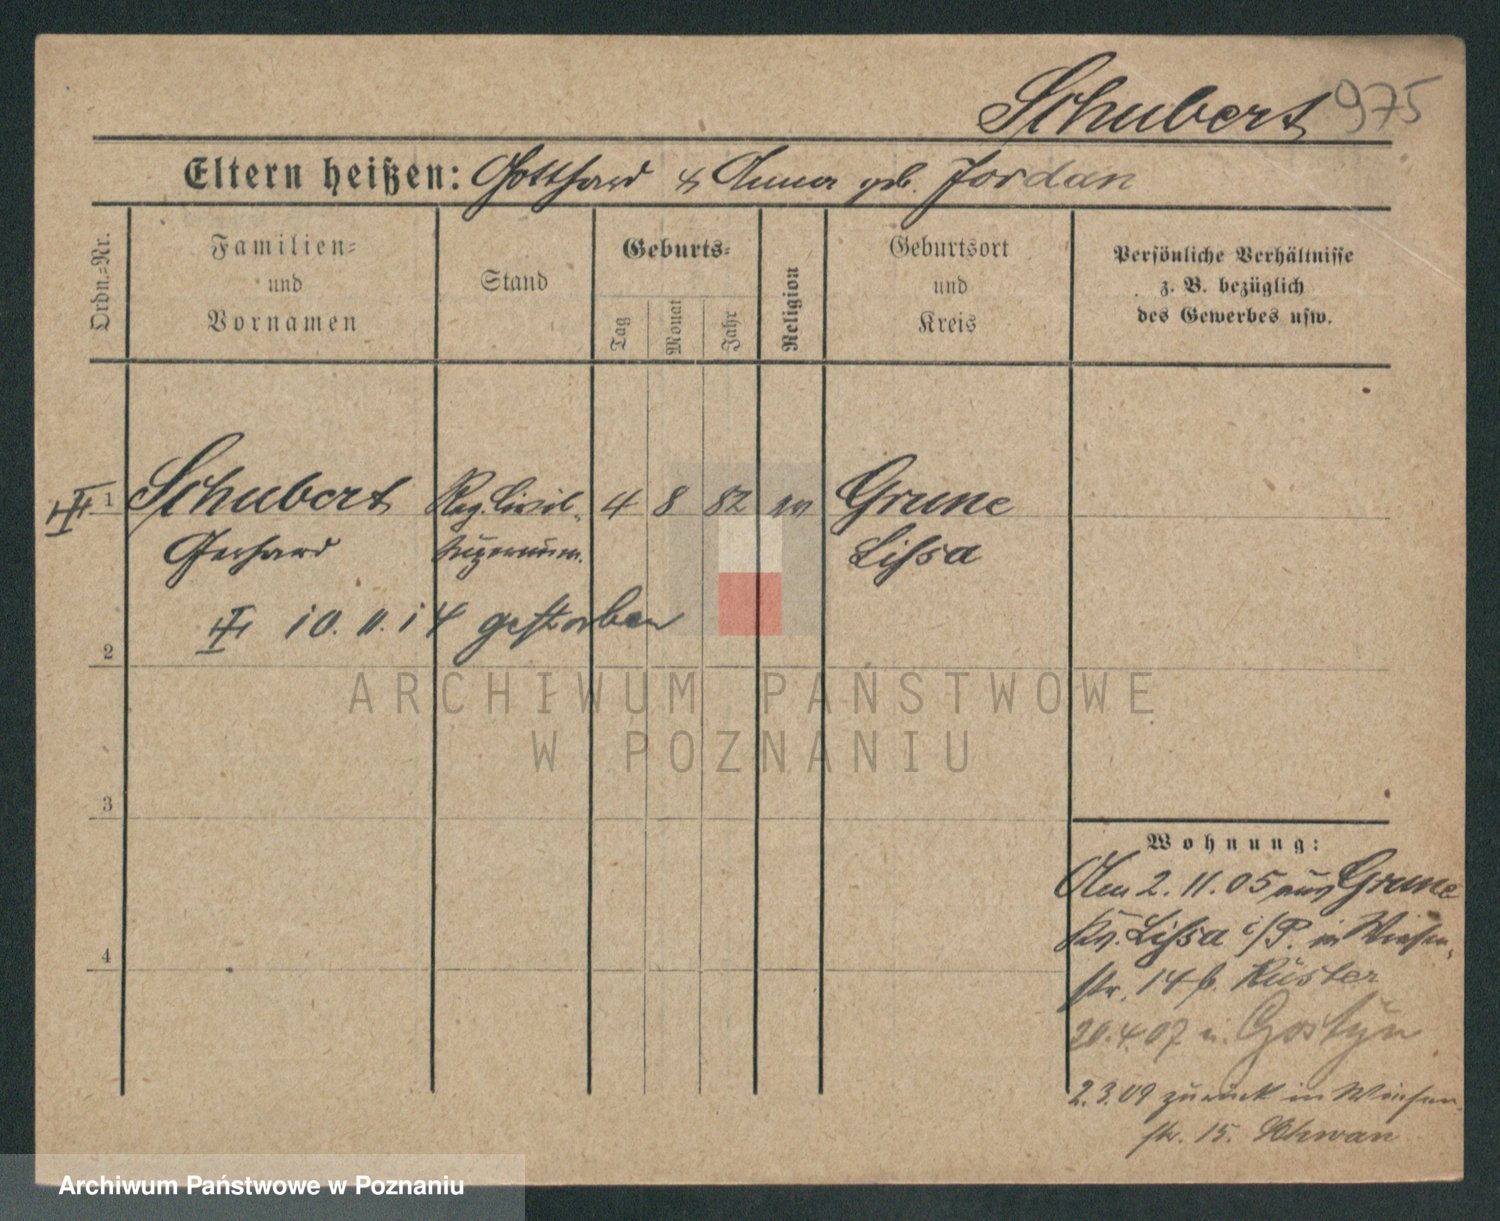 Schubert 975
Eltern heißen: Gotthard & Anna geb. Jordan
Ordn.=Nr.
Familien=
und
Vornamen
Stand
Geburts=
Tag
Monat
Jahr
Religion
Geburtsort
und
Kreis
Persönliche Verhältnisse
z. B. bezüglich
des Gewerbes usw.
1 Schubert Reg. Civil- 4 8 82 ev Grune
Gerhard Supernum. Lissa
10. 11. 14 gestorben
2
3
4
ARCHIWUM PAŃSTWOWE
W POZNANIU
Wohnung:
Am 2. 11. 05 aus Grune
Kr. Lissa i/P. in Wiesen-
str. 14 b. Küster
20.4.07 n. Gostyn
2.3.09 zurück in Wiesen-
str. 15. Schwan
Archiwum Państwowe w Poznaniu